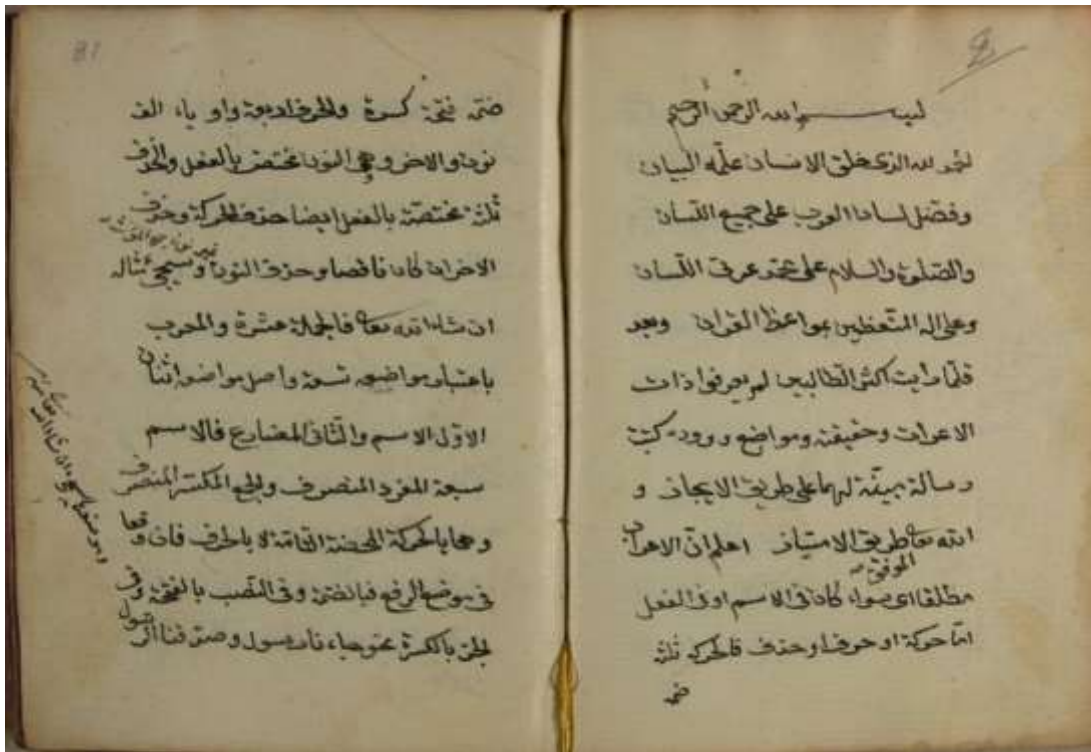 بسم الله الرحمن الرحيم
الحمد لله الذى خلق الانسان علمه البيان
وفضل لسان العرب على جميع اللسان
والصلوة والسلام على محمد عربى اللسان
وعلى اله المتعظين بمواعظ القران وبعد
فلما رايت اكثر الطالبين لم يعرفوا ذات
الاعراب وحقيقته ومواضع وروده كتبت
رسالة مبينة لهما على طريق الايجاز و
الله تعا طريق الامتياز اعلم ان الاعراب
الموفق
مطلقا اى سواء كان فى الاسم او فى الفعل
اما حركة او حرف او حذف فالحركة ثلثة
ضمة
81
ضمة فتحة كسرة والحرف اربعة واو ياء الف
نون والاخر وهى النون مختص بالفعل والحذف
ثلثة مختصة بالفعل ايضا حذف الحركة وحذف
الاخر ان كان ناقصا وحذف النون وسيجئ مثاله
ان شاء الله تعا فالجملة عشرة والمعرب
باعتبار مواضعه تسعة واصل مواضعه اثنان
الاول الاسم والثانى المضارع فالاسم
سبعة المفرد المنصرف والجمع المكسر المنصرف
وهما بالحركة المحضة التامة لا بالحرف فان وقعا
فى موضع الرفع فبالضمة وفى النصب بالفتحة وفى
الجر بالكسرة نحو جاءنا رسول وصدقنا الرسول